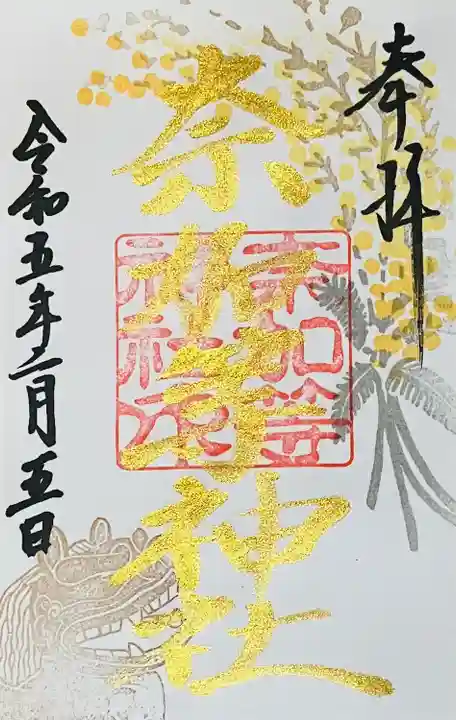 奉拝
奈加等神社
奈加等
神社
令和五年二月五日